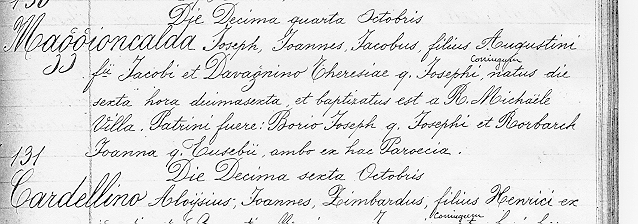 Die Decima quarta Octobris
Maggioncalda Joseph, Joannes, Jacobus, filius Augustini
fù Jacobi et Davagnino Theresiae q. Josephi, Coniugum natus die
sexta hora decimasexta, et baptizatus est a R. Michaële
Villa. Patrini fuere: Borio Joseph q. Josephi et Rorbach
Joanna q. Eusebii, ambo ex hac Paroecia.
131
Die Decima sexta Octobris
Cardellino Aloÿsius, Joannes, Zimbardus, filius Henrici ex
Coniugum